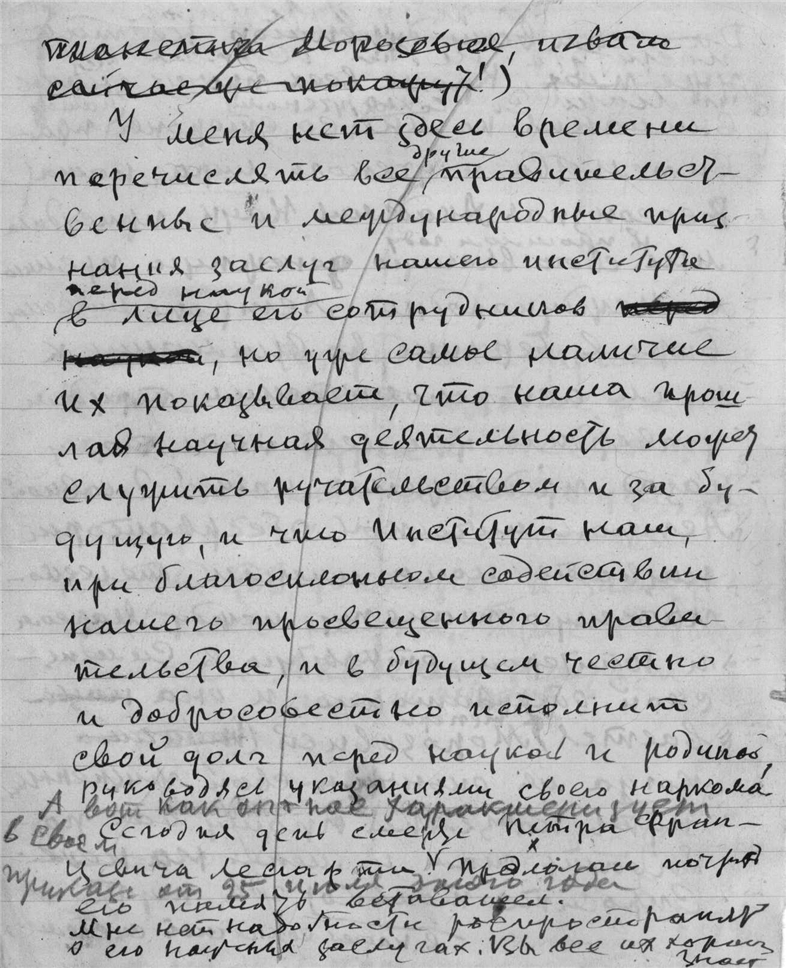 планетка Моросовья, и вам
сейчас же покажут!)
У меня нет здесь времени
другие
перечислять все правительст-
венные и международные приз-
нания заслуг нашего института
перед наукой
в лице его сотрудников перед
наукой, но уже самое наличие
их показывает, что наша прош
лая научная деятельность может
служить ручательством и за бу-
дущую, и что Институт наш,
при благосклонном содействии
нашего просвещенного прави-
тельства, и в будущем честно
и добросовестно исполнит
свой долг перед наукой и родиной,
руководясь указаниями своего наркома
А вот как он нас характеризует
в своем
Сегодня день смерти Петра Фран-
цевича Лесгафта. Предлагаю почтить
приказе от 25 июля этого года
его память вставанием.
Мне нет надобности распространят
о его научных заслугах. Вы все их хорош
знает